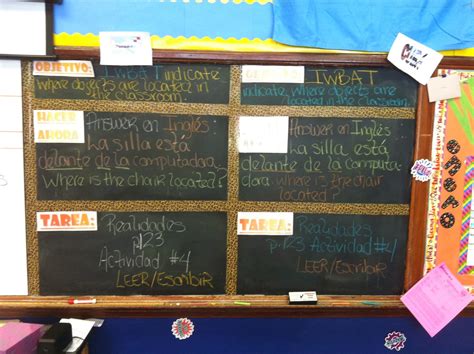 OBJETIVO:
IWBAT indicate
where objects are located in
the classroom.
HACER
AHORA
Answer en Inglés
La silla está
delante de la computadora.
Where is the chair located?
TAREA:
Realidades
p.123
Actividad #4
LEER/Escribir
IWBAT
indicate where objects are
located in the classroom.
Answer en Inglés
La silla está
delante de la computa-
dora where is the chair
located?
TAREA:
Realidades
p.123 Actividad #4
LEER/Escribir